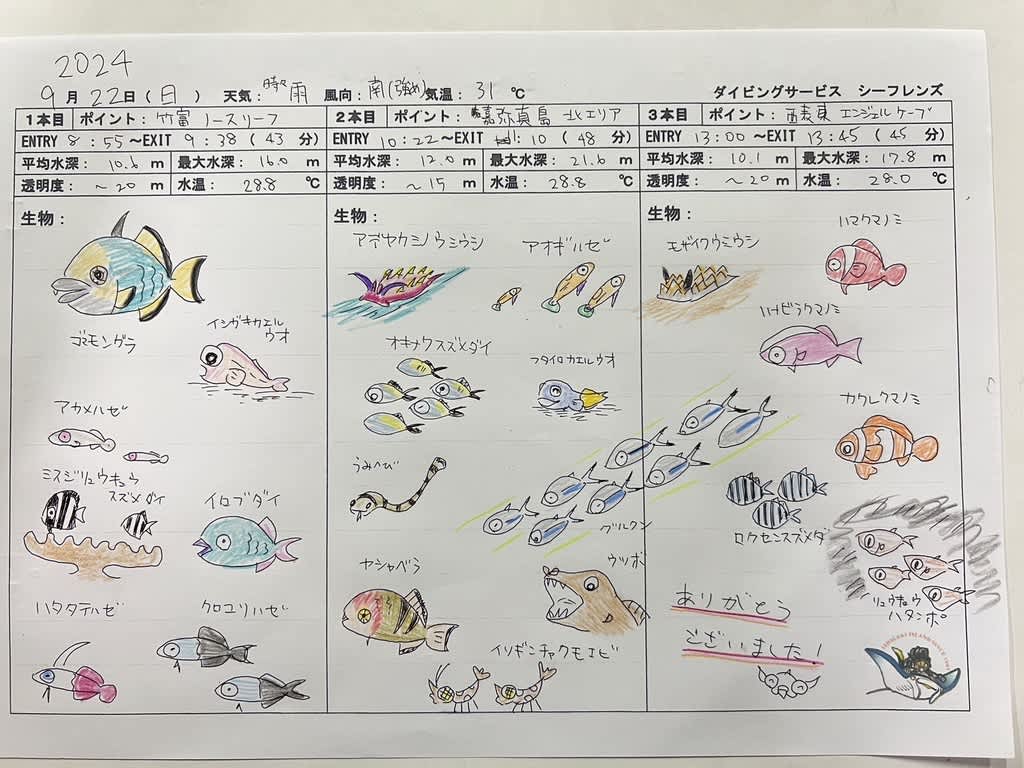 2024
9月22日(日) 天気:時々雨 風向:南(強め)気温:31℃ ダイビングサービス シーフレンズ
1本目 ポイント:竹富 ノースリーフ
ENTRY 8:55～EXIT 9:38(43分)
平均水深:10.6m 最大水深:16.0m
透明度:～20m 水温:28.8℃
生物:
ゴマモンガラ
イシガキカエル
ウオ
アカメハゼ
ミスジリュウキュウ
スズメダイ
イロブダイ
ハタタテハゼ
クロユリハゼ
2本目 ポイント:嘉弥真島 北エリア
ENTRY 10:22～EXIT 11:10(48分)
平均水深:12.0m 最大水深:21.6m
透明度:～15m 水温:28.8℃
生物:
アデヤカミノウミウシ
アオギハゼ
オキナワスズメダイ
フタイロカエルウオ
うみへび
グルクン
ヤシャベラ
ウツボ
イソギンチャクモエビ
3本目 ポイント: エンジェルケーブ
ENTRY 13:00～EXIT 13:45(45分)
平均水深:10.1m 最大水深:17.8m
透明度:～20m 水温:28.0℃
生物:
モザイクウミウシ
ハマクマノミ
ハナビラクマノミ
カクレクマノミ
ロクセンスズメダイ
リュウキュウ
ハタンポ
ありがとう
ございました!